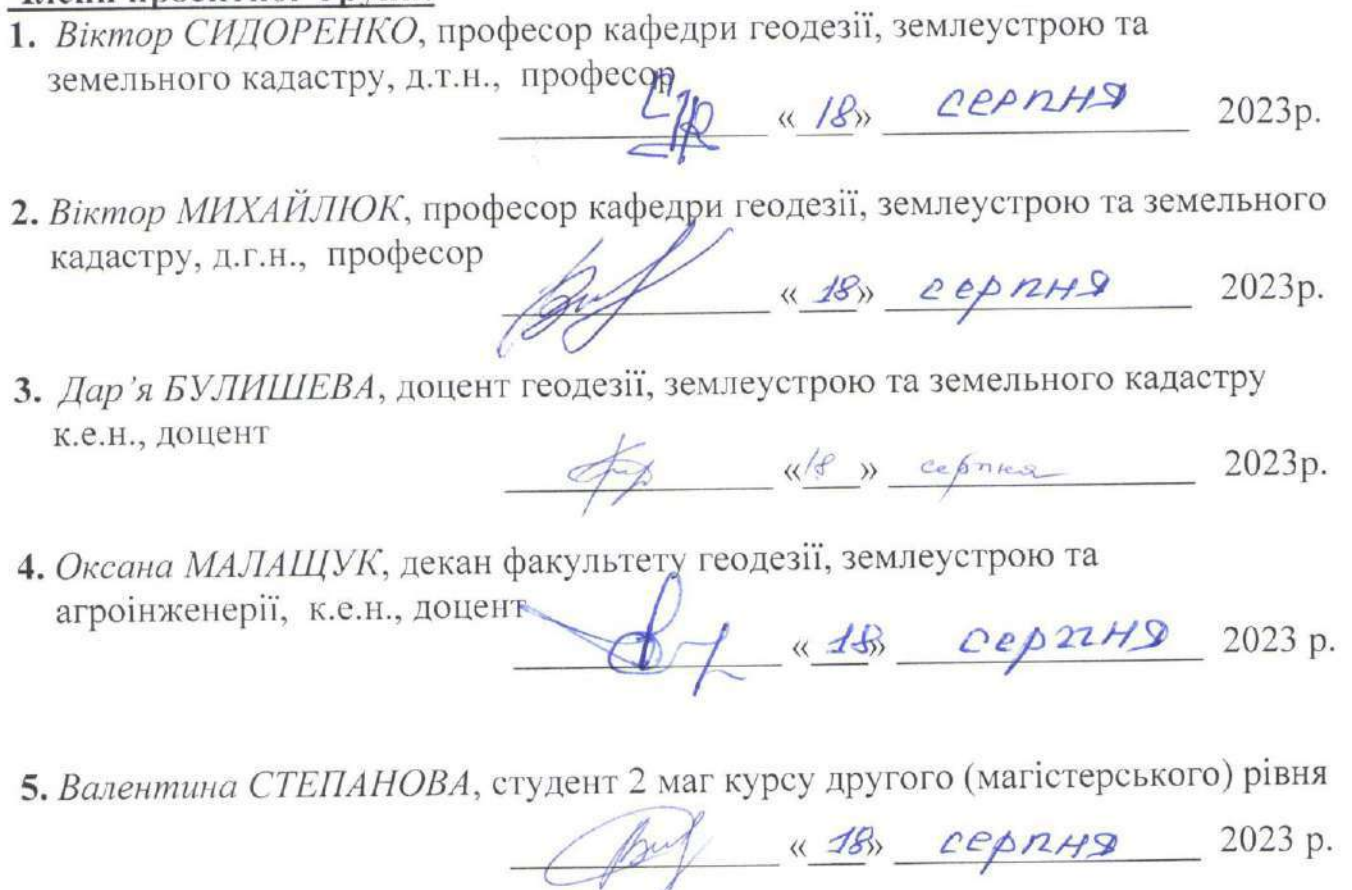 Члени проєктної групи
1. Віктор СИДОРЕНКО, професор кафедри геодезії, землеустрою та
земельного кадастру, д.т.н., професор
« 18» серпня 2023р.
2. Віктор МИХАЙЛЮК, професор кафедри геодезії, землеустрою та земельного
кадастру, д.г.н., професор
« 18» серпня 2023р.
3. Дар’я БУЛИШЕВА, доцент геодезії, землеустрою та земельного кадастру
к.е.н., доцент
«18 » серпня 2023р.
4. Оксана МАЛАЩУК, декан факультету геодезії, землеустрою та
агроінженерії, к.е.н., доцент
« 18» серпня 2023 р.
5. Валентина СТЕПАНОВА, студент 2 маг курсу другого (магістерського) рівня
« 18» серпня 2023 р.